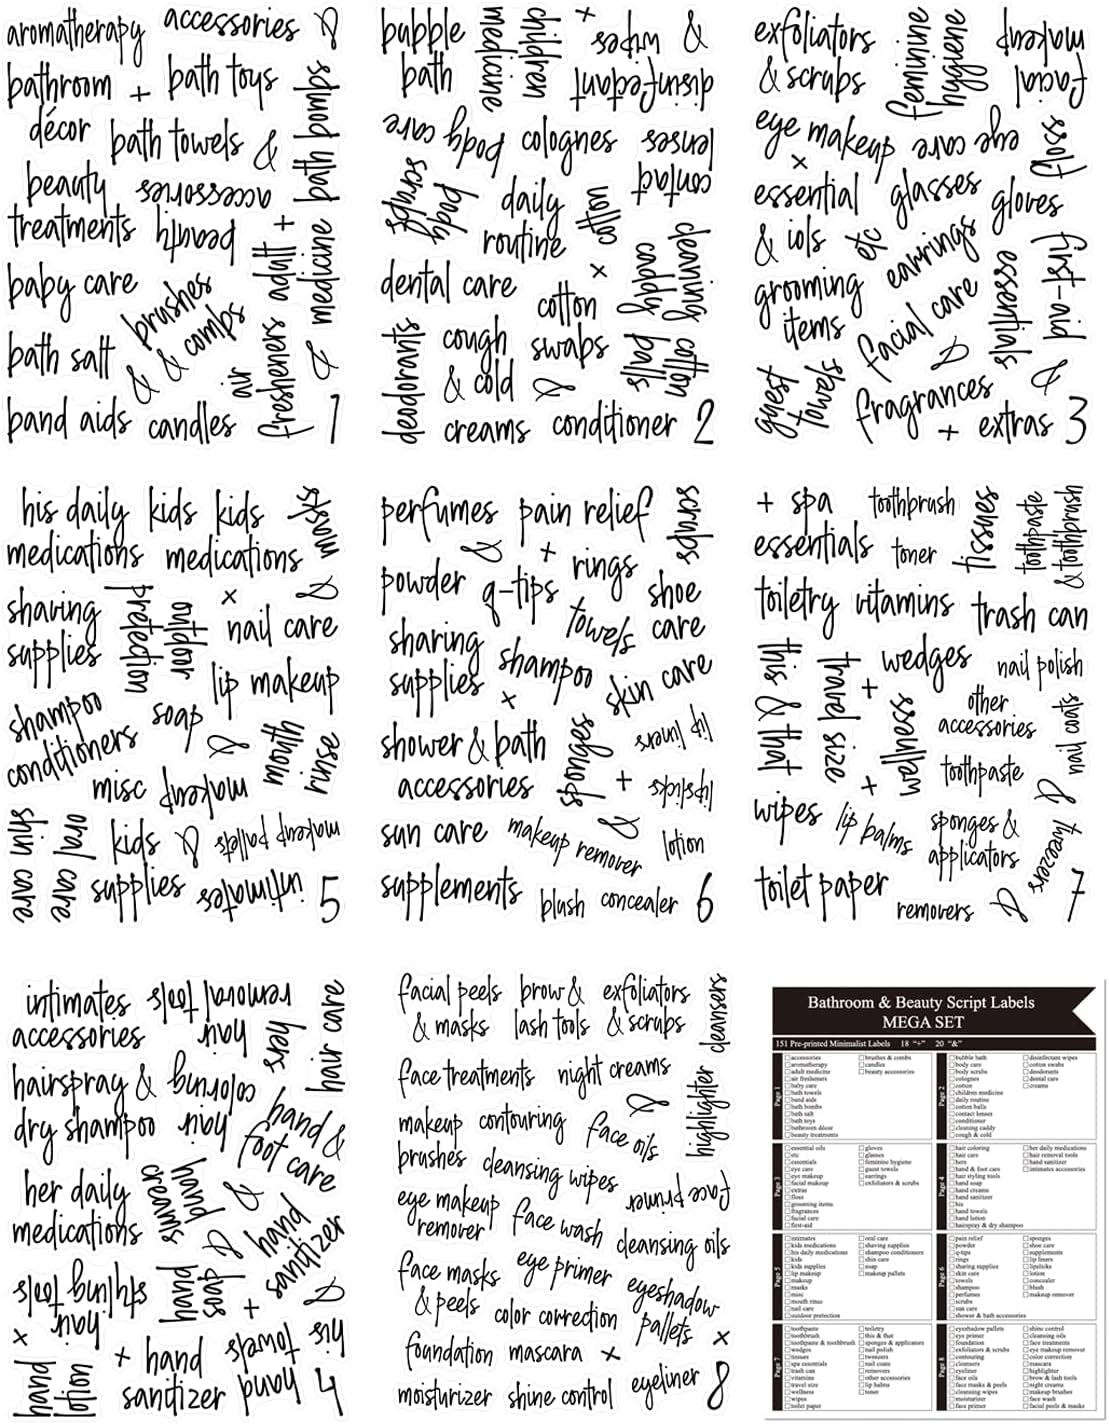 aromatherapy
accessories
&
bathroom
décor
+
bath toys
bath bombs
bath towels
&
beauty
treatments
accessories
beauty
+
adult
medicine
baby care
brushes
& combs
bath salt
&
air
fresheners
&
band aids
candles
1
bubble
bath
children
medicine
+
&
disinfectant
wipes
body care
colognes
contact
lenses
body
scrubs
daily
routine
cotton
cleaning
caddy
dental care
+
cotton
swabs
deodorants
cough
& cold
&
cotton
balls
creams
conditioner
2
exfoliators
& scrubs
feminine
hygiene
facial
makeup
eye makeup
eye care
floss
+
essential
& iols
glasses
gloves
etc
earrings
essentials
first-aid
grooming
items
facial care
&
&
guest
towels
fragrances
+
extras
3
his daily
medications
kids
kids
medications
masks
&
shaving
supplies
outdoor
protection
+
nail care
lip makeup
shampoo
conditioners
soap
&
mouth
rinse
misc
makeup
skin care
oral care
kids
supplies
&
makeup pallets
intimates
5
perfumes
pain relief
scrubs
&
+
powder
q-tips
rings
shoe
care
towels
sharing
supplies
shampoo
+
skin care
shower & bath
accessories
sponges
lip liners
+
lipsticks
sun care
makeup remover
&
lotion
supplements
blush
concealer
6
+ spa
essentials
toothbrush
toner
tissues
toothpaste
& toothbrush
toiletry
vitamins
trash can
this & that
travel size
wedges
nail polish
+
wellness
other
accessories
nail coats
toothpaste
+
&
wipes
lip balms
sponges &
applicators
tweezers
toilet paper
removers
&
7
intimates
accessories
hair
removal tools
hers
hair care
hairspray &
dry shampoo
hair
coloring
hand &
foot care
her daily
medications
hand
creams
&
&
hand
sanitizer
hair
styling tools
hand
soap
+
&
+
hand
lotion
+
hand
sanitizer
hand towels
his
4
facial peels
& masks
brow &
lash tools
exfoliators
& scrubs
cleansers
face treatments
night creams
&
highlighter
makeup
brushes
contouring
face oils
cleansing wipes
face primer
eye makeup
remover
face wash
cleansing oils
face masks
& peels
eye primer
eyeshadow
pallets
color correction
+
foundation
mascara
+
moisturizer
shine control
eyeliner
8
Bathroom & Beauty Script Labels
MEGA SET
151 Pre-printed Minimalist Labels 18 "+" 20 "&"
Page 1
accessories
aromatherapy
adult medicine
air fresheners
baby care
bath towels
band aids
bath bombs
bath salt
bath toys
bathroom décor
beauty treatments
brushes & combs
candles
beauty accessories
Page 2
bubble bath
body care
body scrubs
colognes
cotton
children medicine
daily routine
cotton balls
contact lenses
conditioner
cleaning caddy
cough & cold
disinfectant wipes
cotton swabs
deodorants
dental care
creams
Page 3
essential oils
etc
essentials
eye care
eye makeup
facial makeup
extras
floss
grooming items
fragrances
facial care
first-aid
gloves
glasses
feminine hygiene
guest towels
earrings
exfoliators & scrubs
Page 4
hair coloring
hair care
hers
hand & foot care
hair styling tools
hand soap
hand creams
hand sanitizer
his
hand towels
hand lotion
hairspray & dry shampoo
her daily medications
hair removal tools
hand sanitizer
intimates accessories
Page 5
intimates
kids medications
his daily medications
kids
kids supplies
lip makeup
makeup
masks
misc
mouth rinse
nail care
outdoor protection
oral care
shaving supplies
shampoo conditioners
skin care
soap
makeup pallets
Page 6
pain relief
powder
q-tips
rings
sharing supplies
skin care
towels
shampoo
perfumes
scrubs
sun care
shower & bath accessories
sponges
shoe care
supplements
lip liners
lipsticks
lotion
concealer
blush
makeup remover
Page 7
toothpaste
toothbrush
toothpaste & toothbrush
wedges
tissues
spa essentials
trash can
vitamins
travel size
wellness
wipes
toilet paper
toiletry
this & that
sponges & applicators
nail polish
tweezers
nail coats
removers
other accessories
lip balms
toner
Page 8
eyeshadow pallets
eye primer
foundation
exfoliators & scrubs
contouring
cleansers
eyeliner
face oils
face masks & peels
cleansing wipes
moisturizer
face primer
shine control
cleansing oils
face treatments
eye makeup remover
night creams
color correction
mascara
highlighter
brow & lash tools
makeup brushes
face wash
facial peels & masks